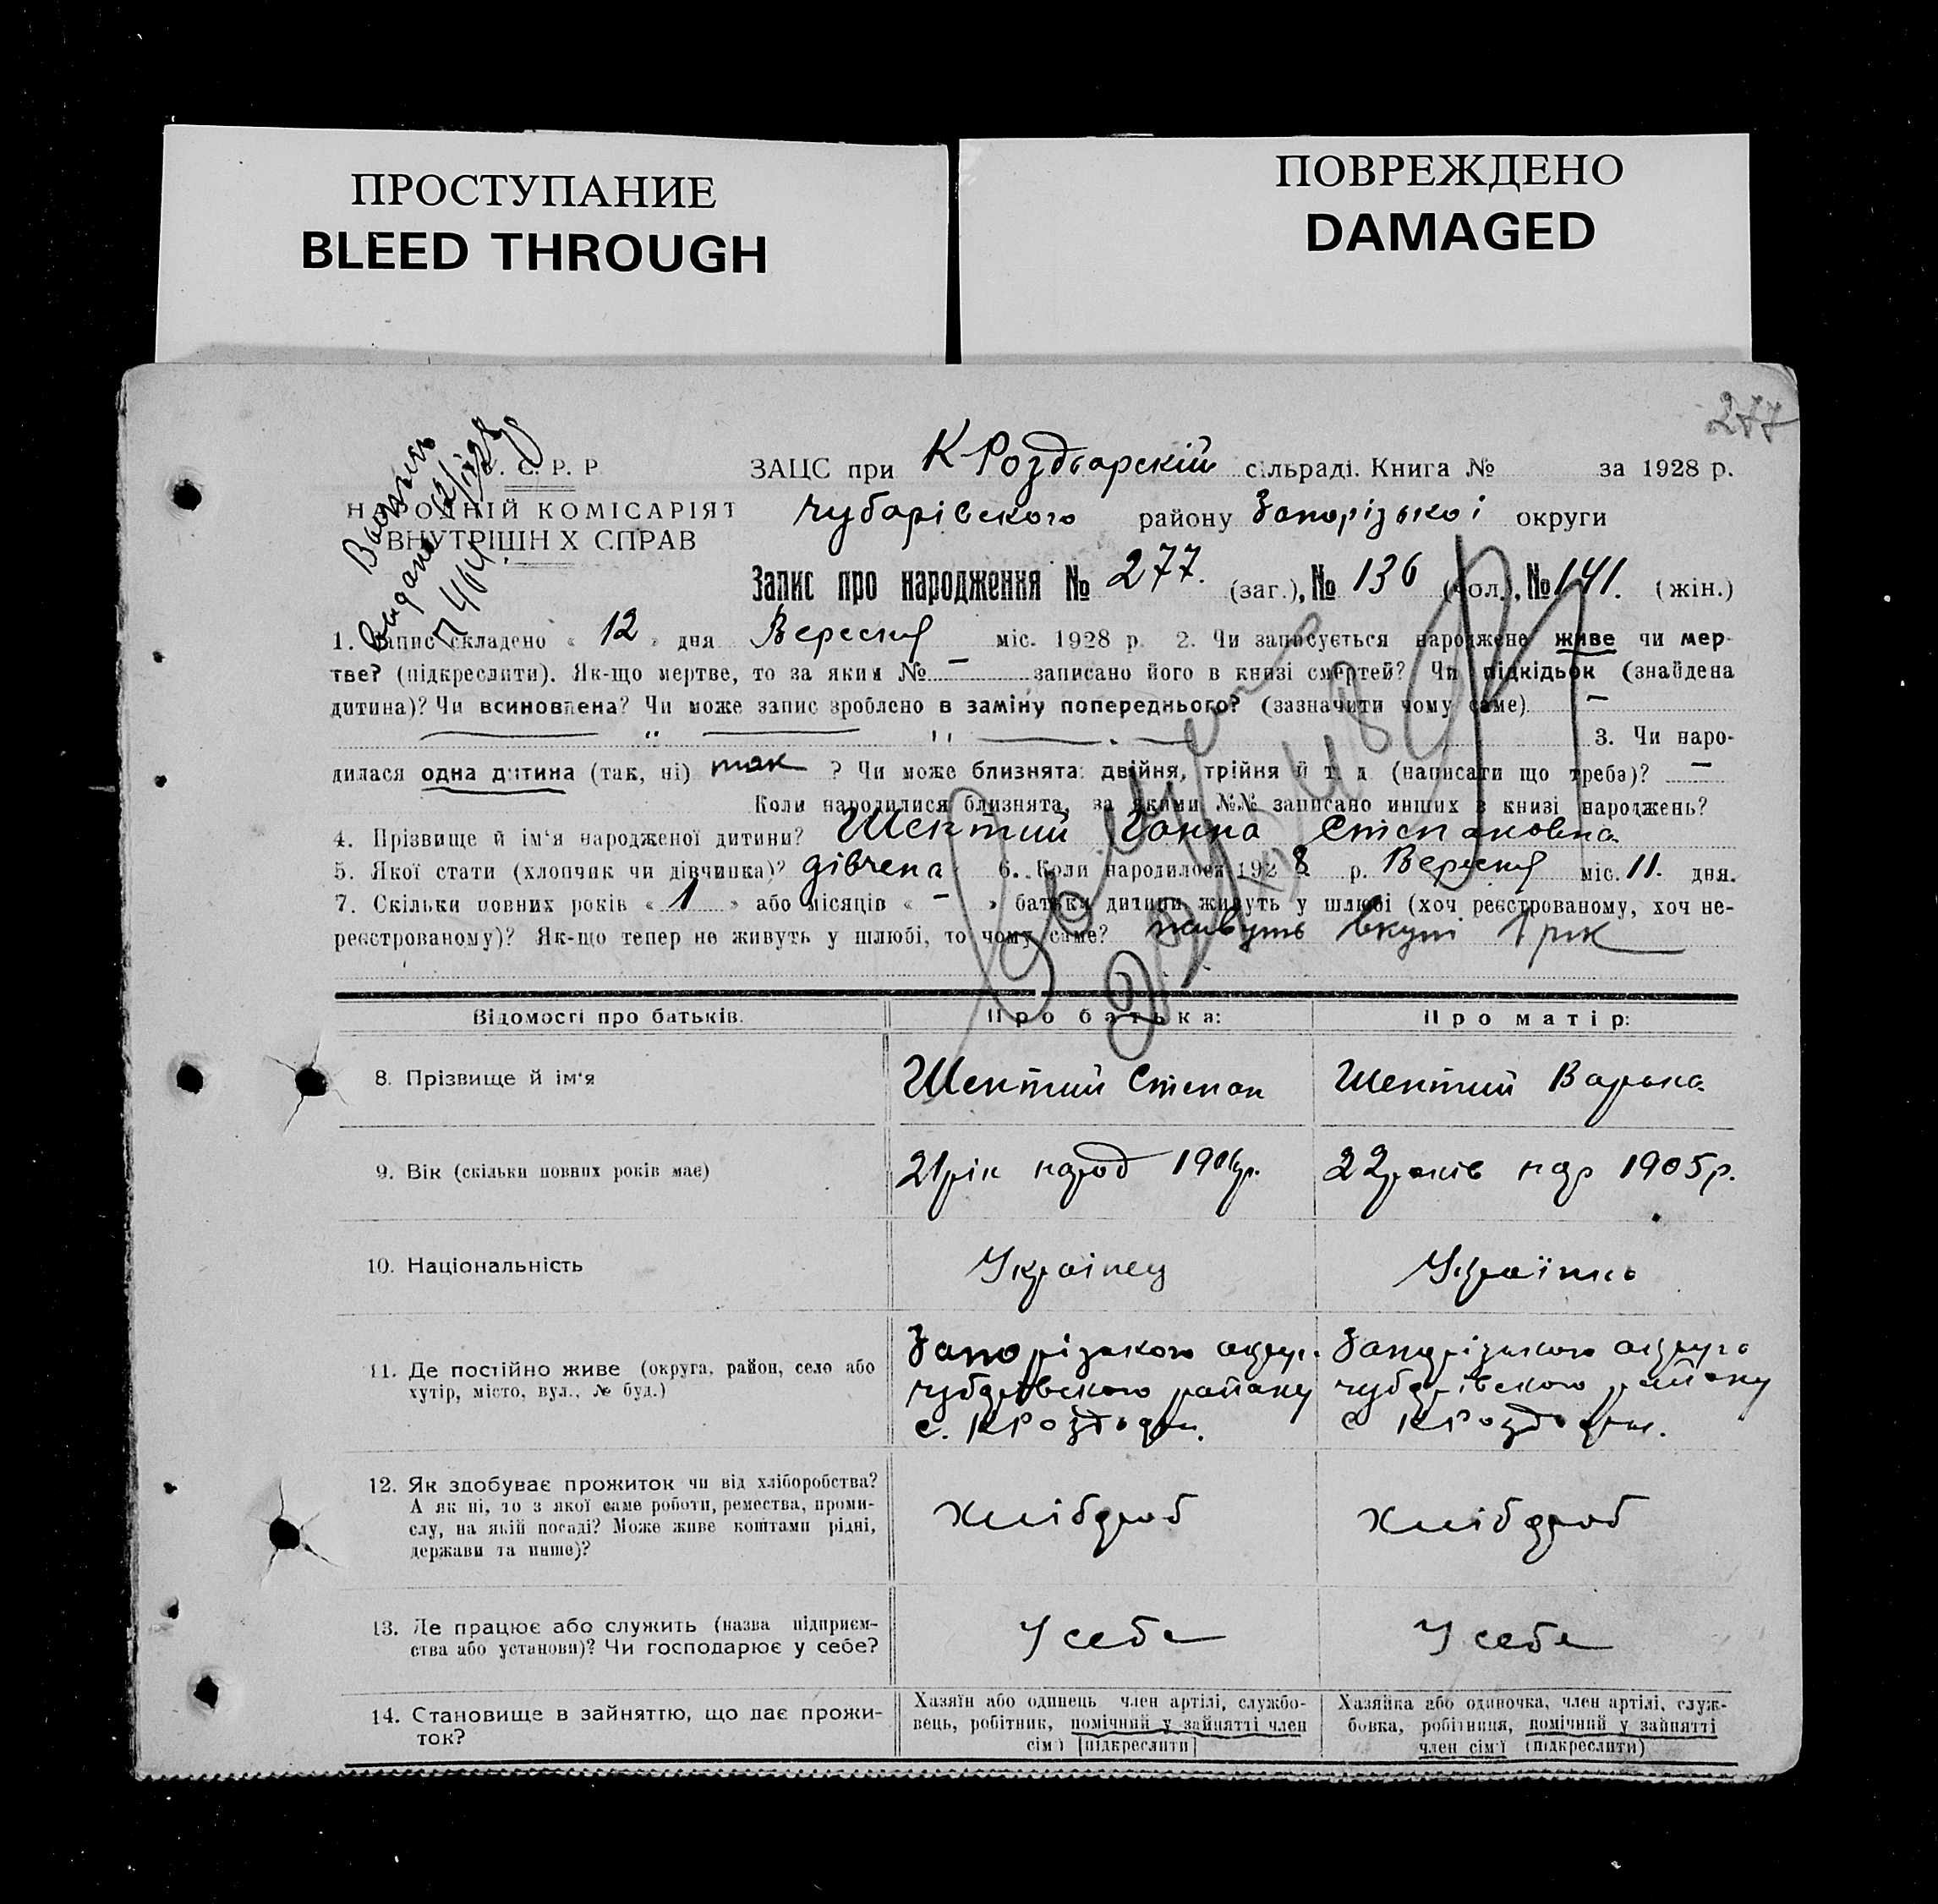 ПРОСТУПАНИЕ
BLEED THROUGH
ПОВРЕЖДЕНО
DAMAGED
277
С. Р. Р
НАРОДНІЙ КОМІСАРІЯТ
ВНУТРІШН Х СПРАВ
Випись
видана 12/ІХ28
ЗАЦС при К Роздорскій сільраді. Книга № за 1928 р.
Чубарівського району Запорізької округи
Запис про народження № 277. (заг.), № 136 (чол.), № 141. (жін.)
1. Запис складено « 12 » дня Вересня міс. 1928 р. 2. Чи записується народжене живе чи мер-
тве? (підкреслити). Як-що мертве, то за яким № — записано його в книзі смертей? Чи підкідьок (знайдена
дитина)? Чи всиновлена? Чи може запис зроблено в заміну попереднього? (зазначити чому саме) —
— „ — „ — 3. Чи наро-
дилася одна дитина (так, ні) так ? Чи може близнята: двійня, трійня й т. д. (написати що треба)? —
Коли народилися близнята, за якими №№ записано инших в книзі народжень?
4. Прізвище й ім'я народженої дитини? Шектий Ганна Степановна
5. Якої стати (хлопчик чи дівчинка)? дівчена 6. Коли народилося 1928 р. Вересня міс. 11. дня.
7. Скільки повних років « 1 » або місяців « — » батьки дитини живуть у шлюбі (хоч реєстрованому, хоч не-
реєстрованому)? Як-що тепер не живуть у шлюбі, то чому саме? живуть вкупі 1 рік
Відомості про батьків. Про батька: Про матір:
8. Прізвище й ім'я Шектий Степан Шектий Варька
9. Вік (скільки повних років має) 21 рік народ 1906р. 22 років нар 1905р.
10. Національність Украінец Украінка
11. Де постійно живе (округа, район, село або Запорізького округ. Запорізького округа
хутір, місто, вул., № буд.) чубарівського району чубарівського району
с. К Роздори. с К Роздори.
12. Як здобуває прожиток чи від хліборобства?
А як ні, то з якої саме роботи, ремества, проми-
слу, на якій посаді? Може живе коштами рідні, Хлібороб Хлібороб
держави та инше)?
13. Де працює або служить (назва підприєм- У себе У себе
ства або установи)? Чи господарює у себе?
14. Становище в зайняттю, що дає прожи-
ток?
Хазяїн або одинець член артілі, службо-
вець, робітник, помічний у зайнятті член
сім'ї [підкреслити]
Хазяйка або одиночка, член артілі, служ-
бовка, робітниця, помічний у зайнятті
член сім'ї (підкреслити)